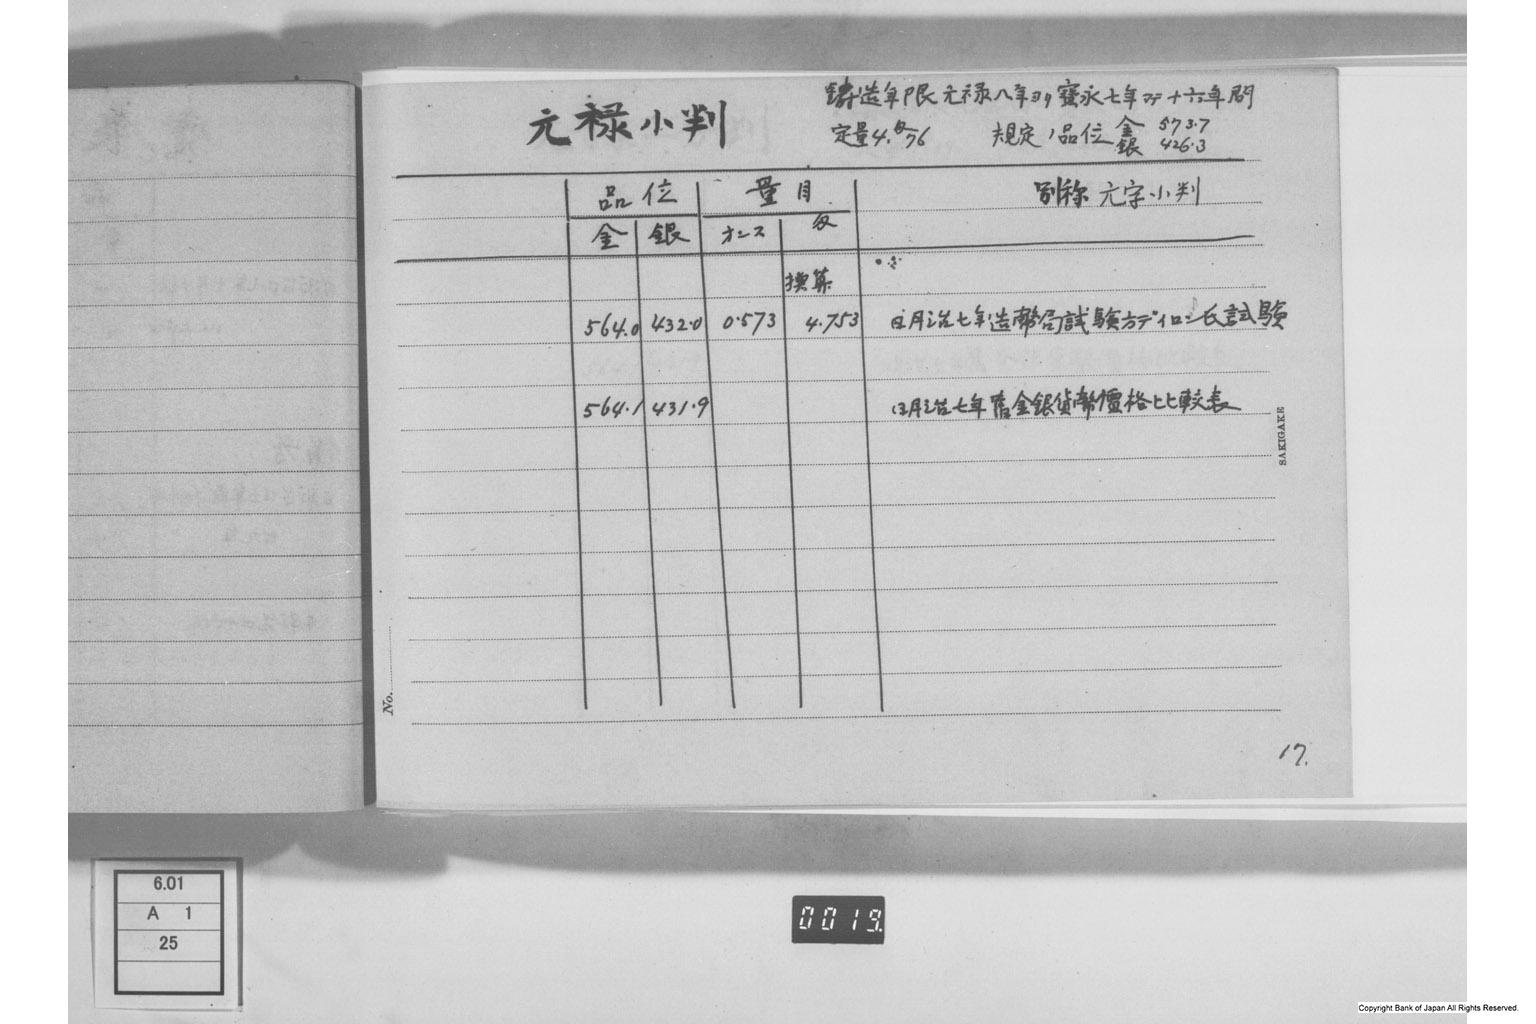 元禄小判
鋳造年限元禄八年ヨリ寶永七年マデ十六年間
定量4.匁76 規定ノ品位 金 573.7
銀 426.3
品位 量目 別称 元字小判
金 銀 オンス 匁
換算
564.0 432.0 0.573 4.753 明治七年造幣局試験方ディロン氏試験
564.1 431.9 明治七年舊金銀貨幣價格比較表
SAKIGAKE
No.
17.
6.01
A 1
25
0019
Copyright Bank of Japan All Rights Reserved.